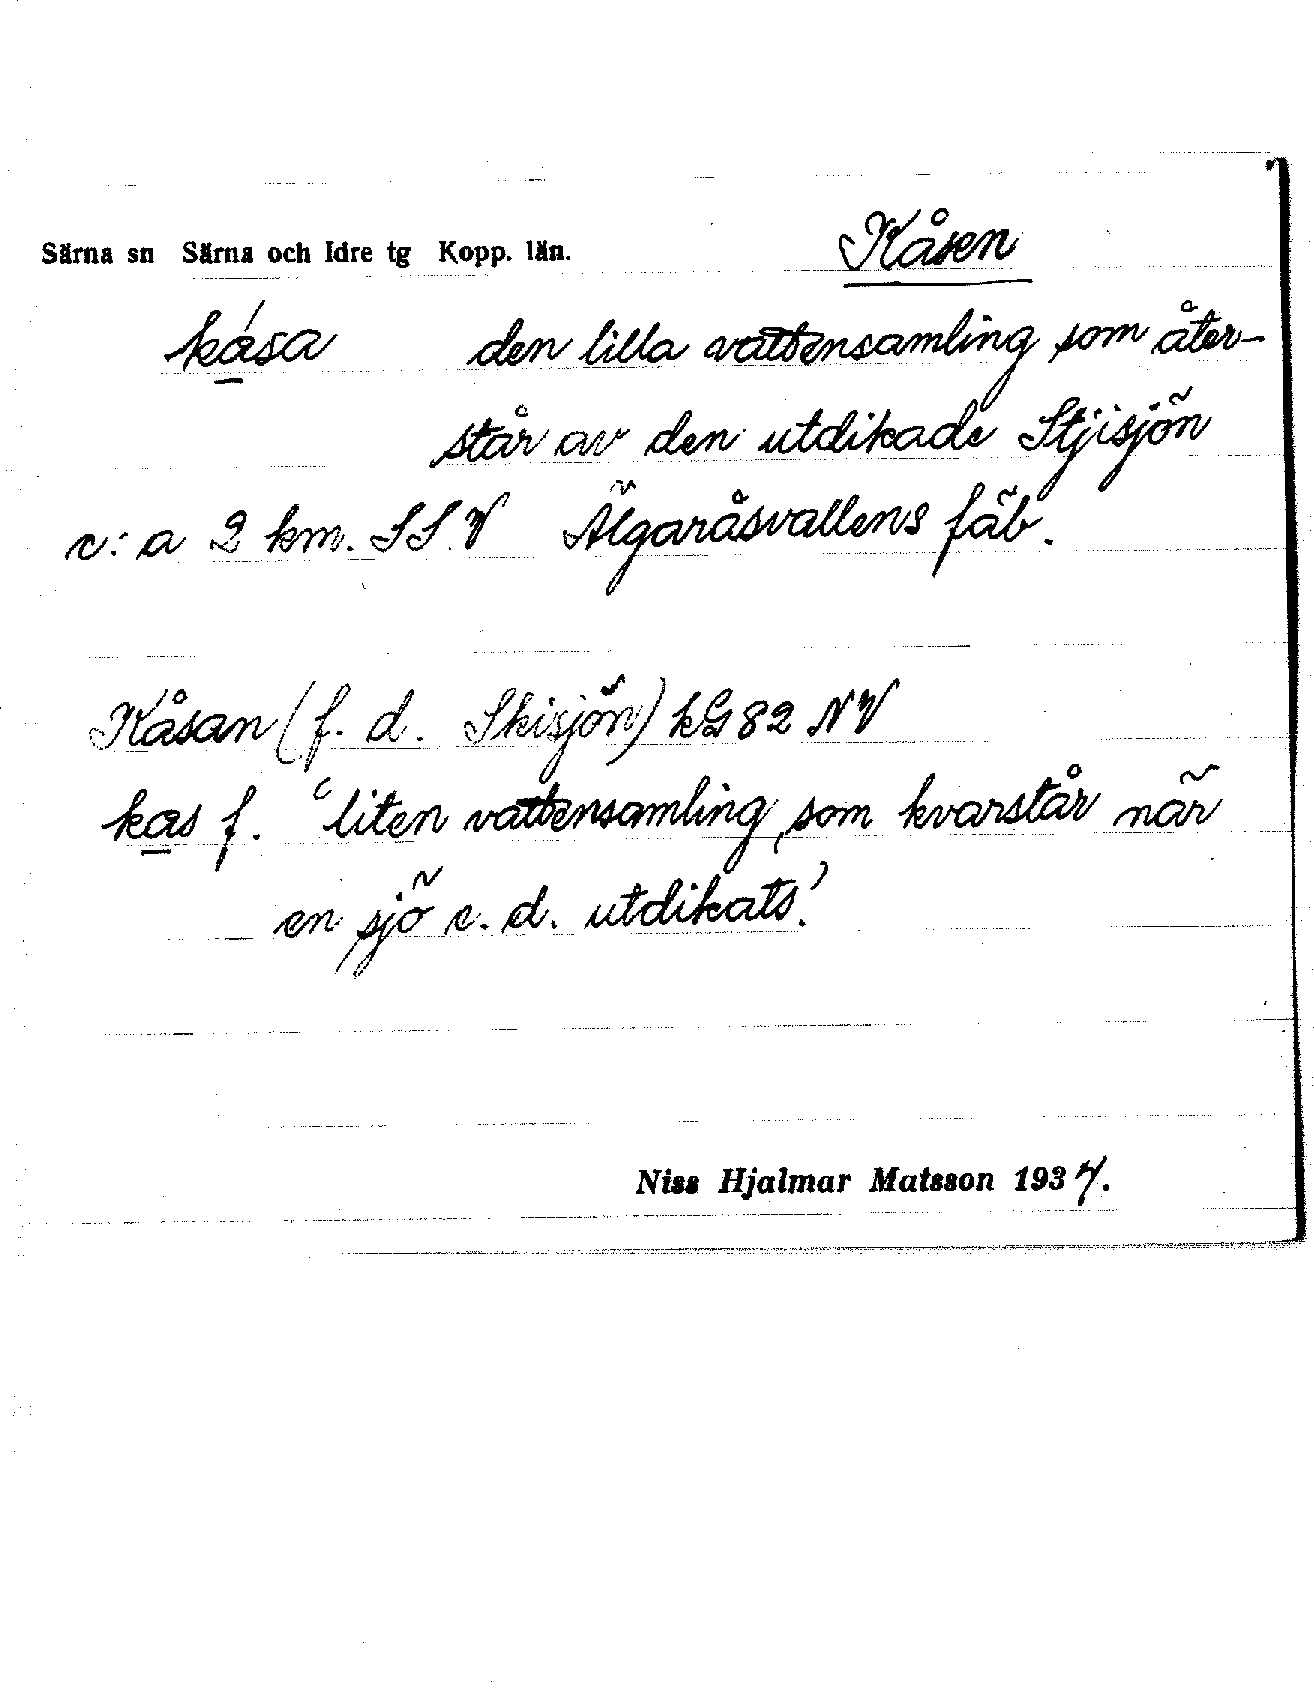 Särna sn Särna och Idre tg Kopp. län. Kåsen
ká̱sa den lilla vattensamling som åter-
står av den utdikade Stjisjön
c:a 2 km. SSV Älgaråsvallens fäb.
Kåsan (f. d. Skisjön) kG82 NV
ka̱s f. ‘liten vattensamling, som kvarstår när
en sjö e. d. utdikats.’
Niss Hjalmar Matsson 1937.